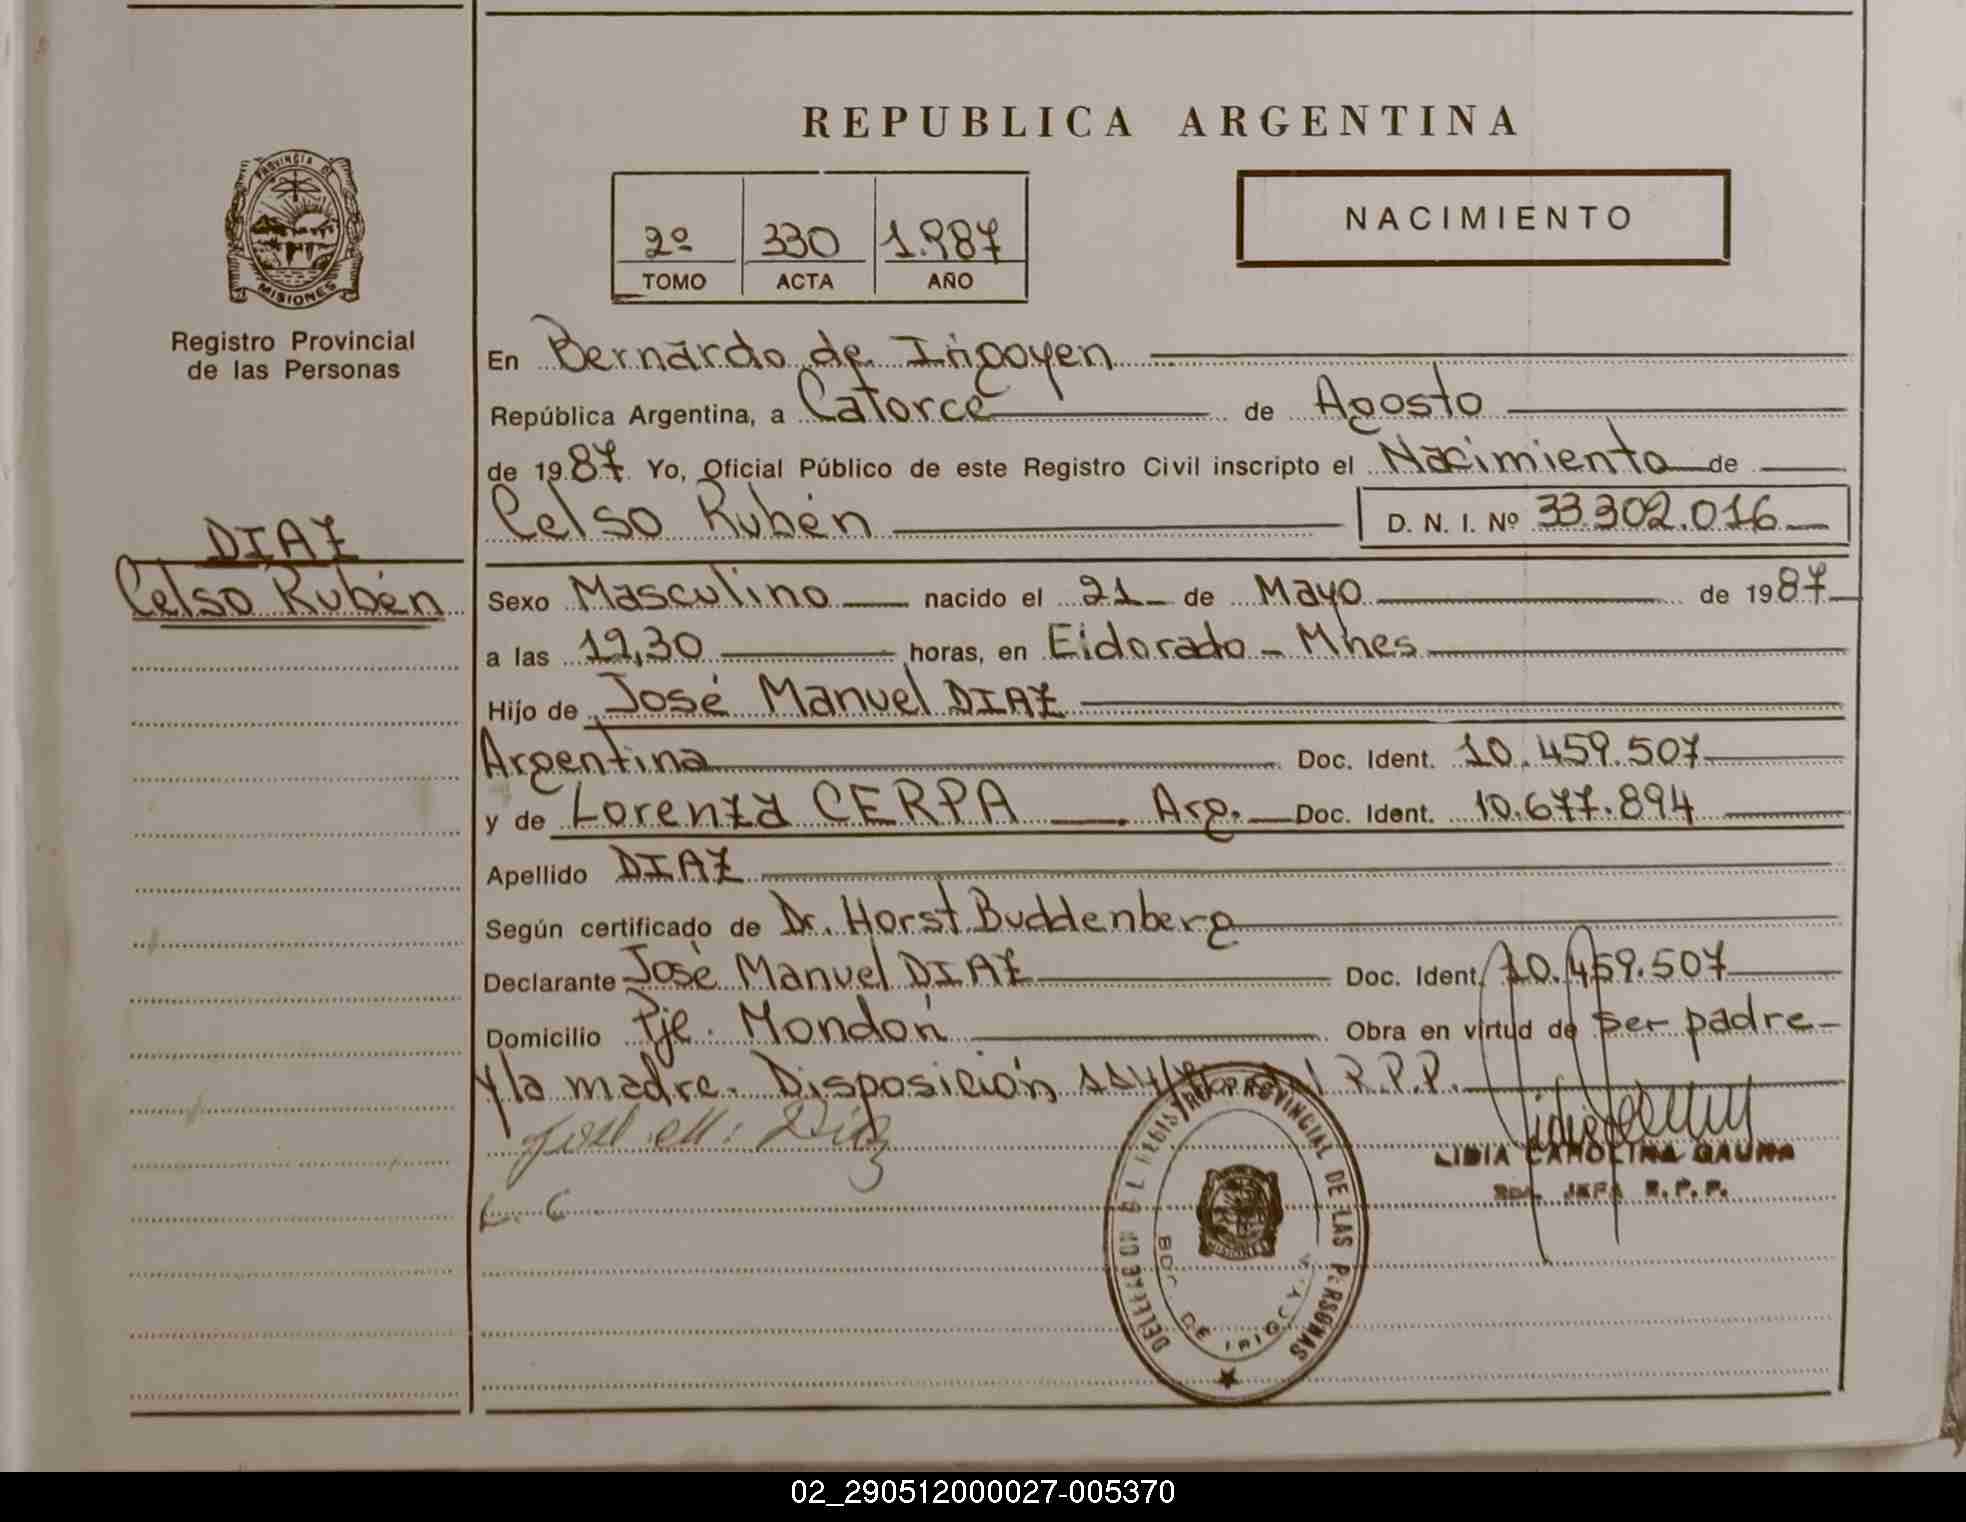 REPUBLICA ARGENTINA
PROVINCIA DE
MISIONES
Registro Provincial
de las Personas
2º 330 1.987
TOMO ACTA AÑO
NACIMIENTO
En Bernardo de Irigoyen
República Argentina, a Catorce de Agosto
de 1987. Yo, Oficial Público de este Registro Civil inscripto el Nacimiento de
Celso Rubén D. N. I. Nº 33.302.016
DIAZ
Celso Rubén
Sexo Masculino nacido el 21 de Mayo de 1987
a las 12,30 horas, en Eldorado - Mnes
Hijo de José Manuel DIAZ
Argentina Doc. Ident. 10.459.507
y de Lorenza CERPA Arg. Doc. Ident. 10.677.894
Apellido DIAZ
Según certificado de Dr. Horst Buddenberg
Declarante José Manuel DIAZ Doc. Ident. 10.459.507
Domicilio Pje. Mondorí Obra en virtud de ser padre
y la madre. Disposición R.P.P.
José M. Díaz
L. C
REGISTRO PROVINCIAL DE LAS PERSONAS
DE IRIGOY
MISIONES
LIDIA CAROLINA GAUNA
JEFA R. P. P.
02_290512000027-005370